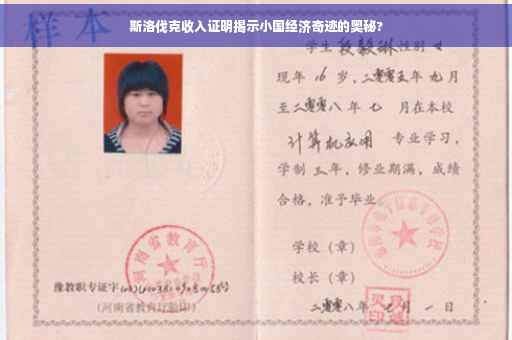 斯洛伐克收入证明揭示小国经济奇迹的奥秘?
样本
学生 段毅琳 性别 女
现年 16 岁,二零零五年 九月
至二零零八年 七 月在本校
计算机应用 专业学习,
学制 三年,修业期满,成绩
合格,准予毕业
学校(章)
校长(章)
二零零八年 月 一 日
河南省教育厅
豫教职专证字
(河南省教育厅验印)